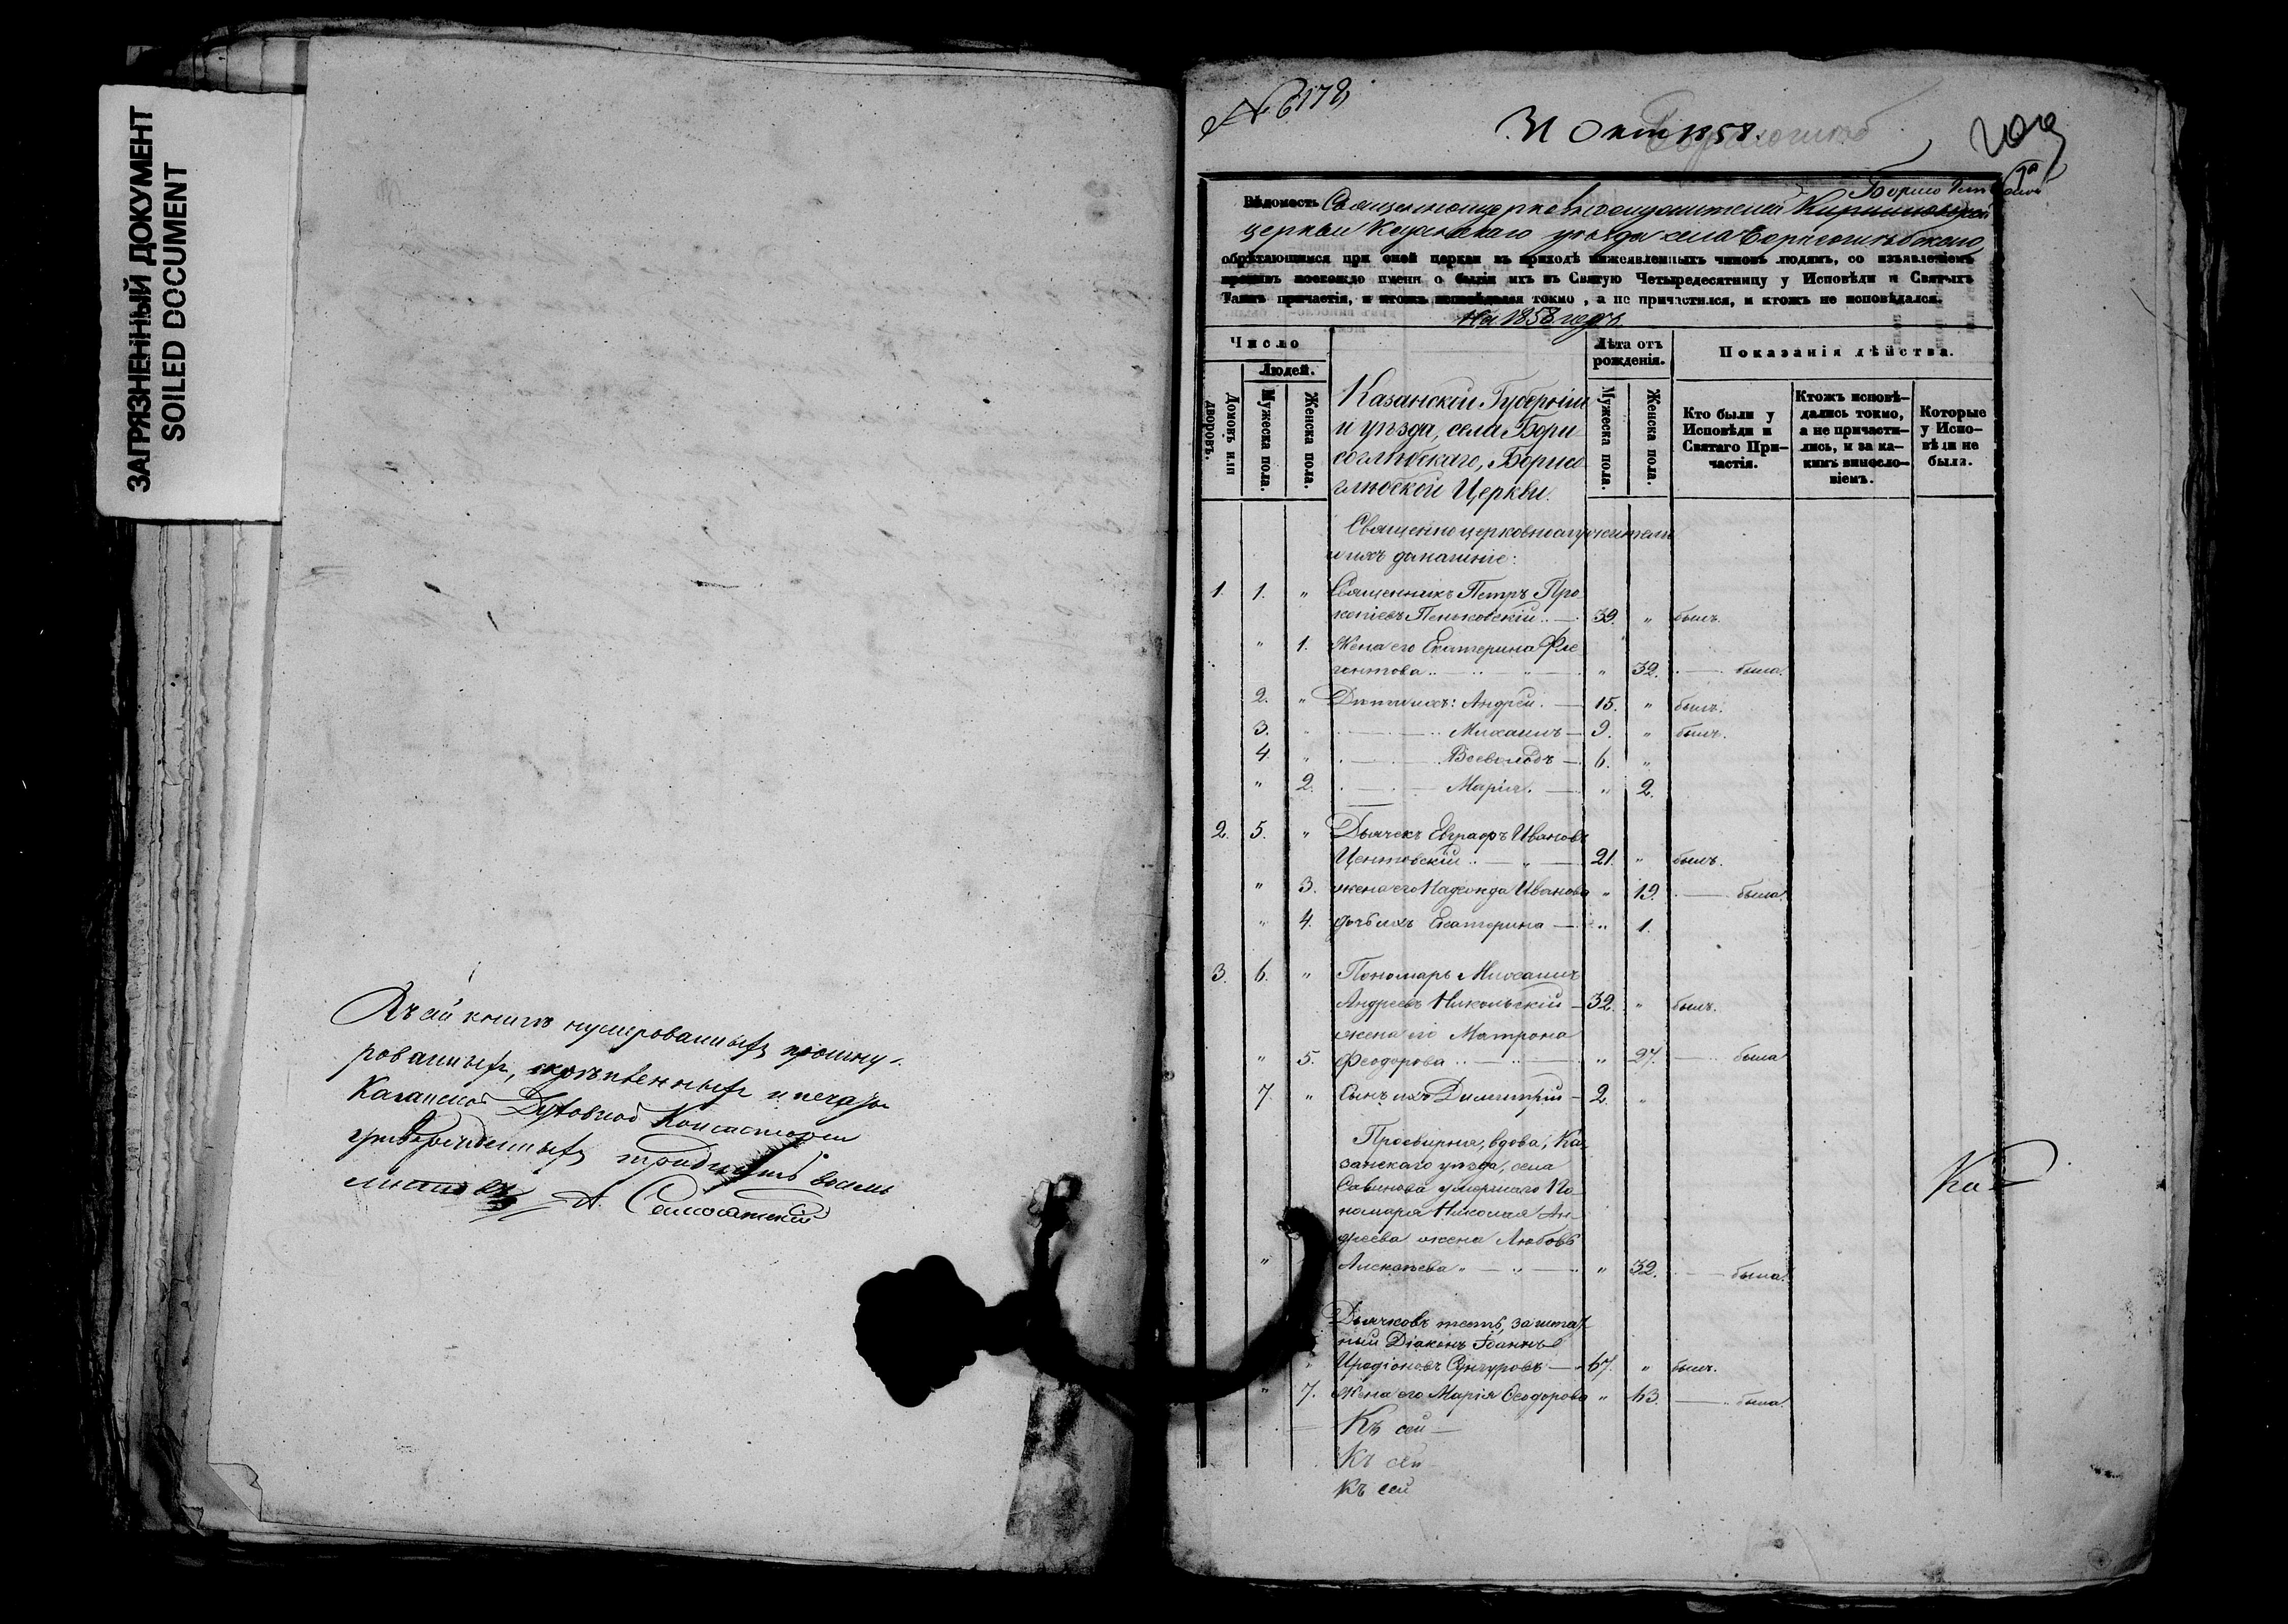 ЗАГРЯЗНЕННЫЙ ДОКУМЕНТ
SOILED DOCUMENT
Въ сей книгѣ нумерованныхъ прошну-
рованныхъ, скрѣпленныхъ и печатью
Казанской Духовной Консисторіи
утвержденныхъ тридцать восемь
листовъ
№ 6178
31 Окт 1858.
Борисоглѣб
Борисоглѣбской
Вѣдомость Священноцерковнослужителей
церкви Казанскаго уѣзда села Борисоглѣбскаго
обрѣтающимся при оной церкви въ приходѣ нижеявленныхъ чиновъ людямъ, со изъявленіемъ
противъ коегождо имени о бытіи ихъ въ Святую Четыредесятницу у Исповѣди и Святыхъ
Таинъ причастія, и ктожъ исповѣдался токмо, а не причастился, и ктожъ не исповѣдался.
На 1858 годъ
Число
Лѣта отъ рожденія.
Показанія дѣйства.
Домовъ или дворовъ.
Людей.
Мужеска пола.
Женска пола.
Казанской Губерніи
и уѣзда, села Бори
соглѣбскаго, Борисо
глѣбской Церкви.
Мужеска пола.
Женска пола.
Кто были у Исповѣди и Святаго Причастія.
Ктожъ исповѣдались токмо, а не причастились, и за какимъ винословіемъ.
Которые у Исповѣди не были.
Священноцерковнослужители
и ихъ домашніе:
1. 1. " Священникъ Петръ Про
копіевъ Пеньковскій 39. " былъ.
" 1. Жена его Екатерина Фле
гонтова " 32. была.
2. " Дѣти ихъ: Андрей. 15. " былъ.
3. " Михаилъ 9. " былъ.
4. " Всеволодъ 6. "
" 2. Марія. " 2.
2. 5. " Дьячекъ Евграфъ Ивановъ
Центовскій 21. " былъ.
" 3. жена его Надежда Иванова " 19. была.
" 4. дочь ихъ Екатерина " 1.
3. 6. " Пономарь Михаилъ
Андреевъ Никольскій 32. " былъ.
жена его Матрона
" 5. Феодорова " 27. была
7. " Сынъ ихъ Димитрій 2. "
Просвирня, вдова, Ка
занскаго уѣзда, села
Савинова умершаго По
номаря Николая Ан
дреева жена Любовь
" Алексѣева " 32. была.
Дьячковъ тесть, заштат
ный Діаконъ Іоаннъ
" Иродіоновъ 67. " былъ.
" 7. Жена его Марія Ѳеодорова " 63. была.
Къ сей
Къ сей
Къ сей